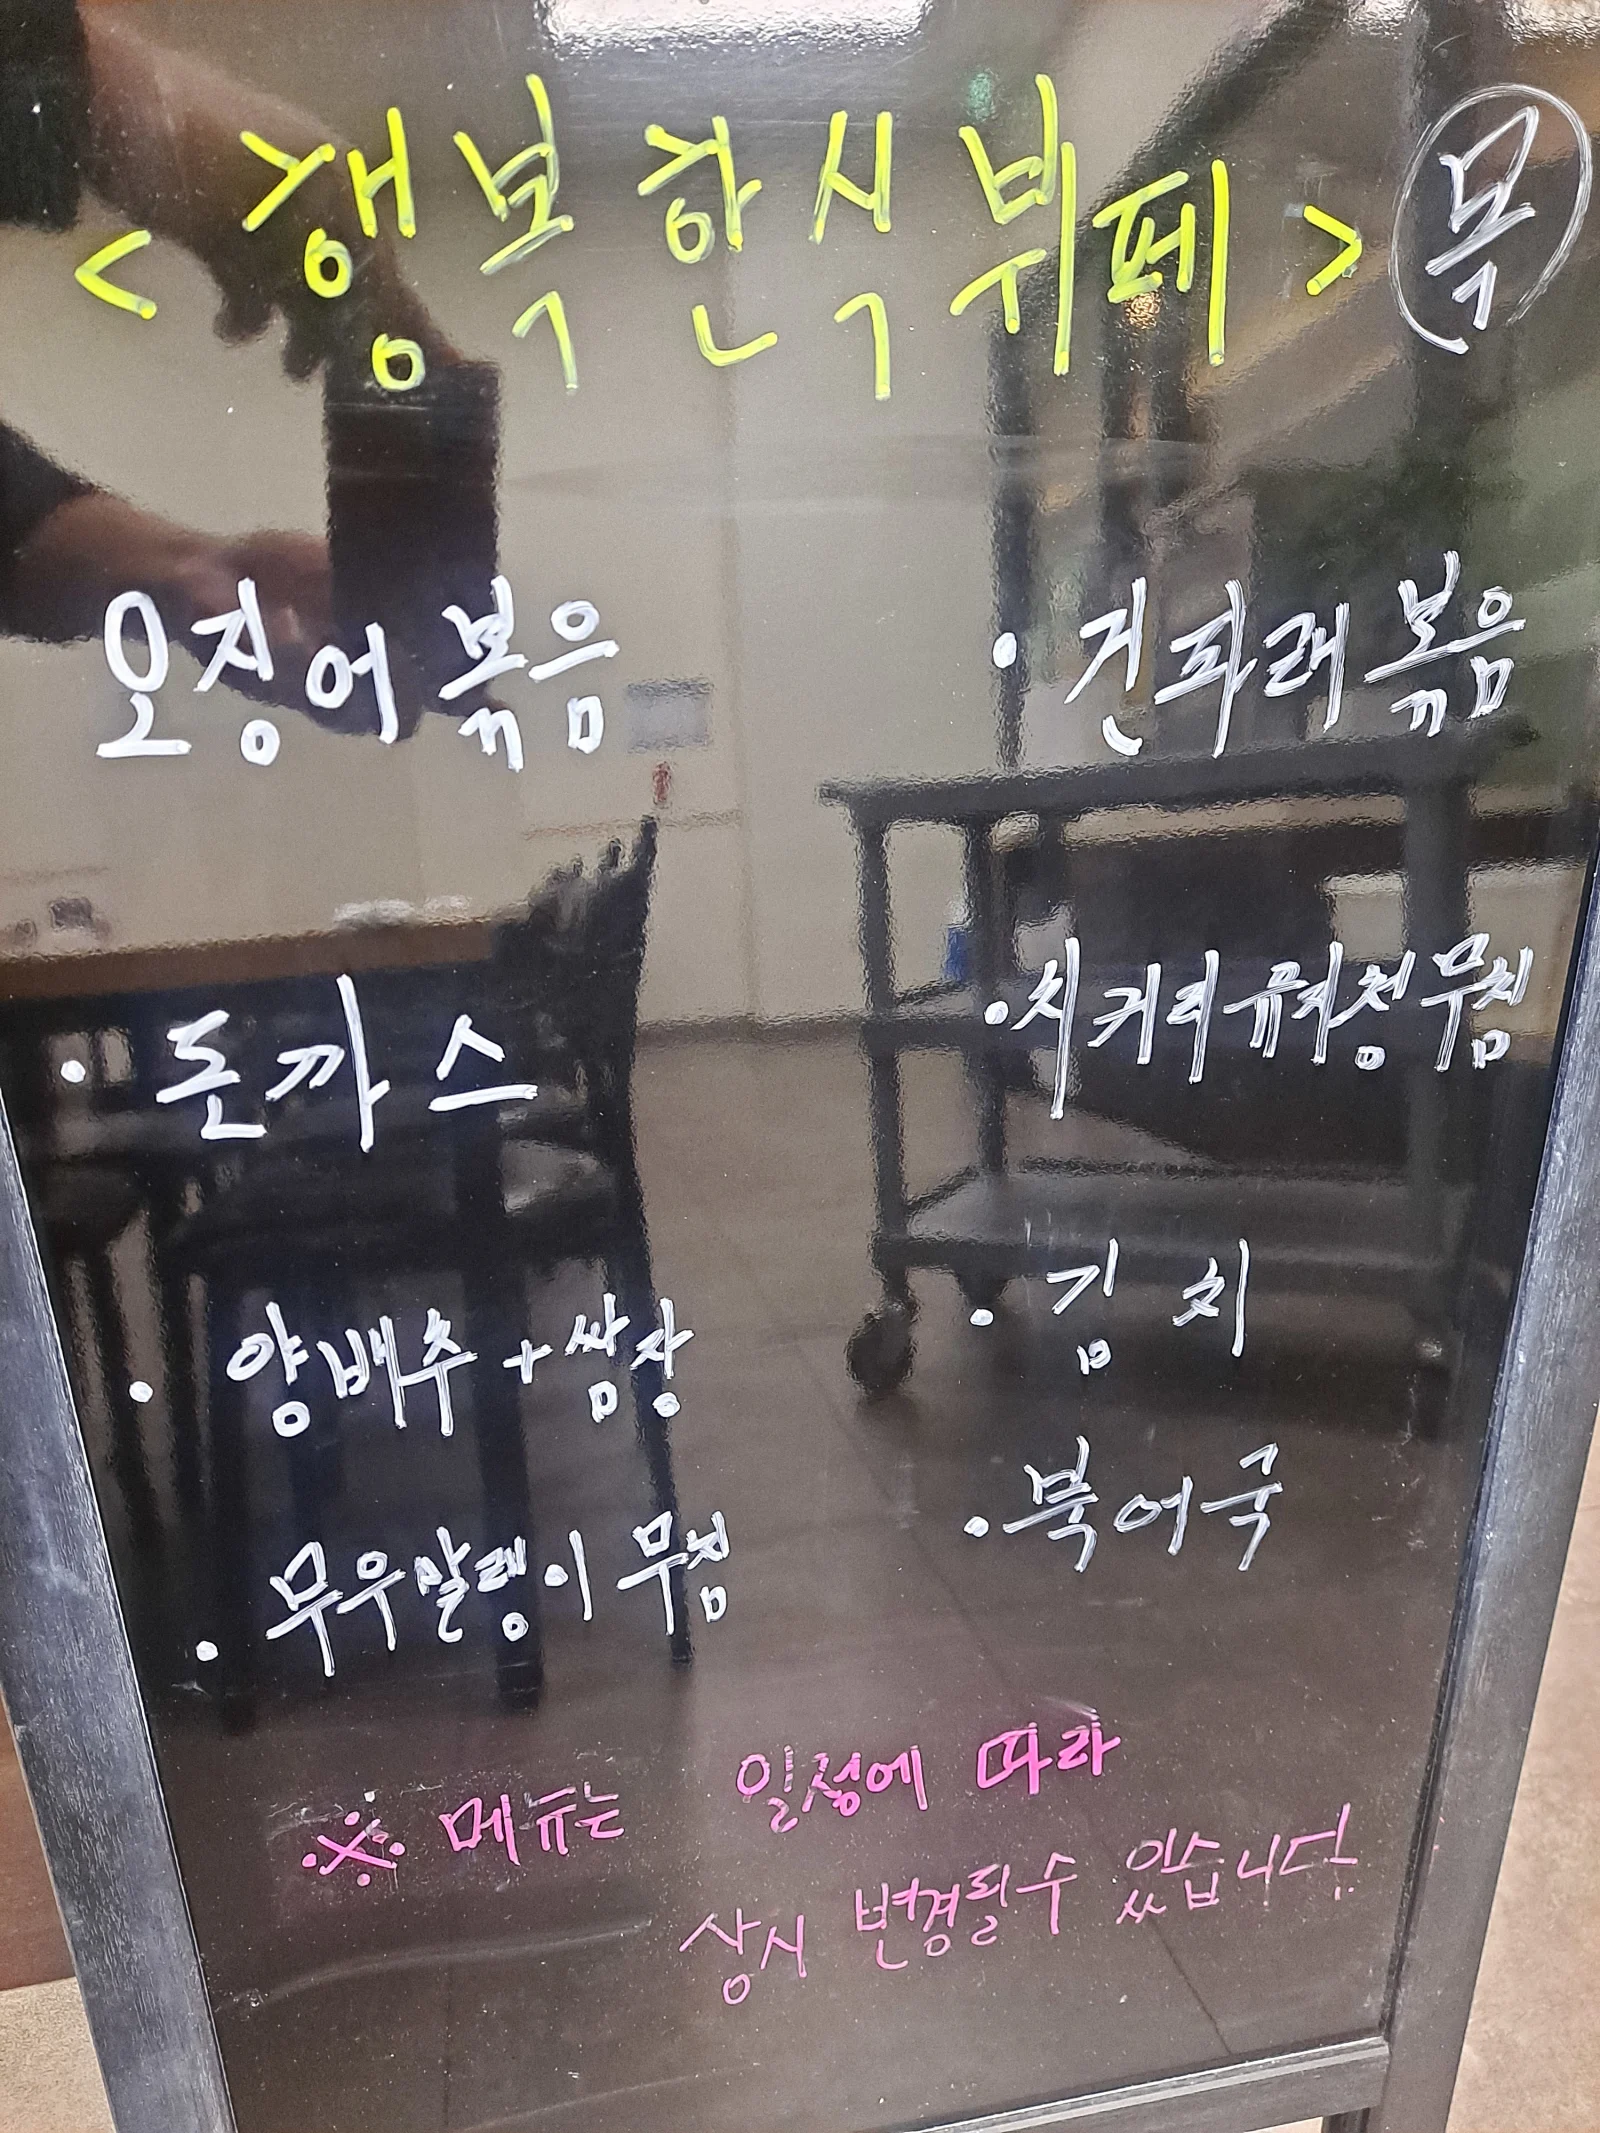 <행복한식뷔페> 목
오징어볶음
· 돈까스
· 양배추+쌈장
· 무우말랭이무침
· 건파래볶음
· 치커리유자청무침
· 김치
· 북어국
※ 메뉴는 일정에 따라
상시 변경될수 있습니다.